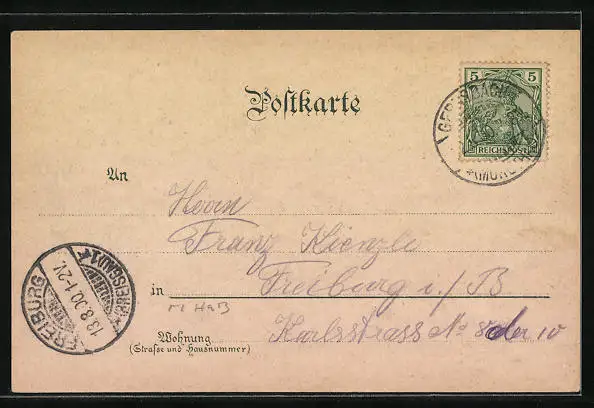 Postkarte
5 5
REICHSPOST
GERNSBACH
(MURG
An
Herrn
Franz Kienzle
in Freiburg i./B
Wohnung
(Straße und Hausnummer)
Karlsstrass No 8 oder 10
FREIBURG
13.8.00.1-2V.
(BREISGAU)1